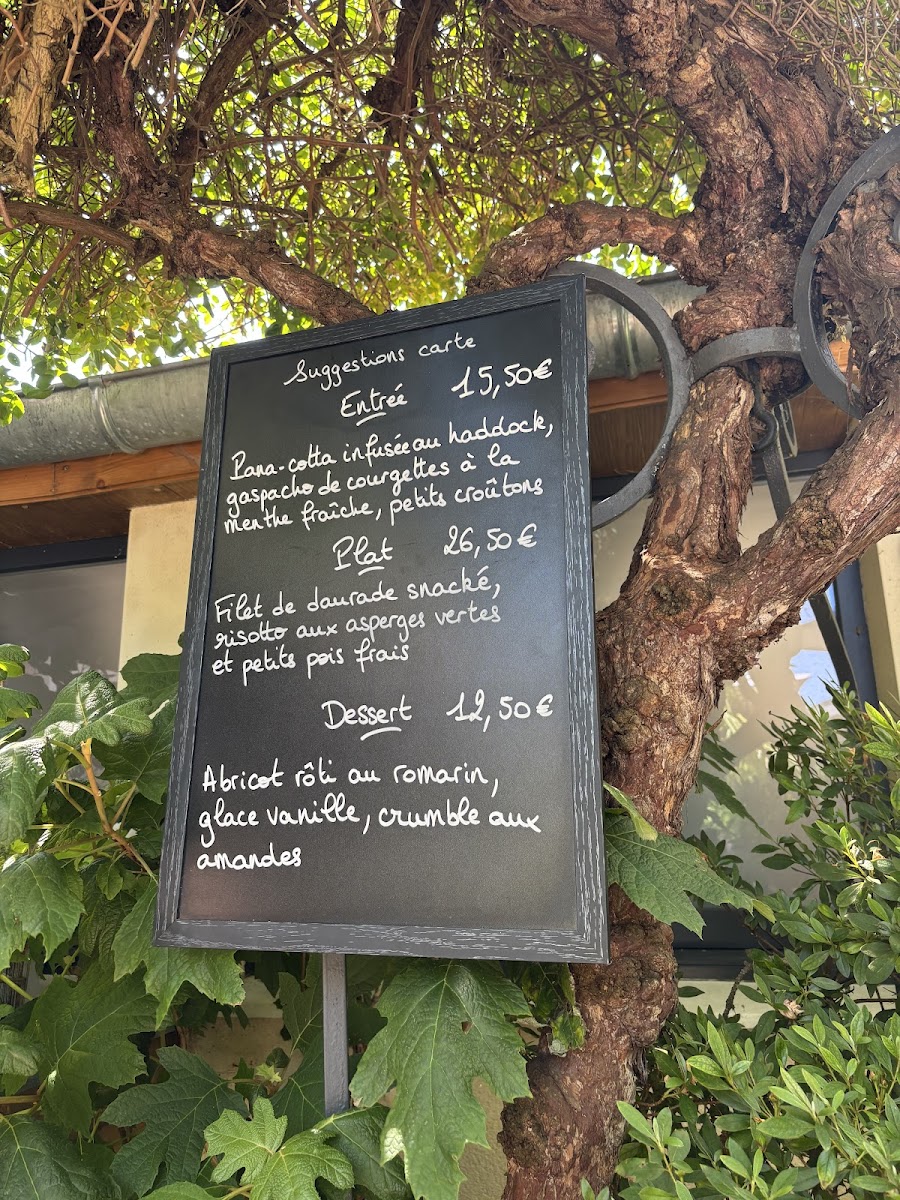 Suggestions carte
Entrée 15,50€
Pana-cotta infusée au haddock,
gaspacho de courgettes à la
menthe fraîche, petits croûtons
Plat 26,50€
Filet de daurade snacké,
risotto aux asperges vertes
et petits pois frais
Dessert 12,50€
Abricot rôti au romarin,
glace vanille, crumble aux
amandes